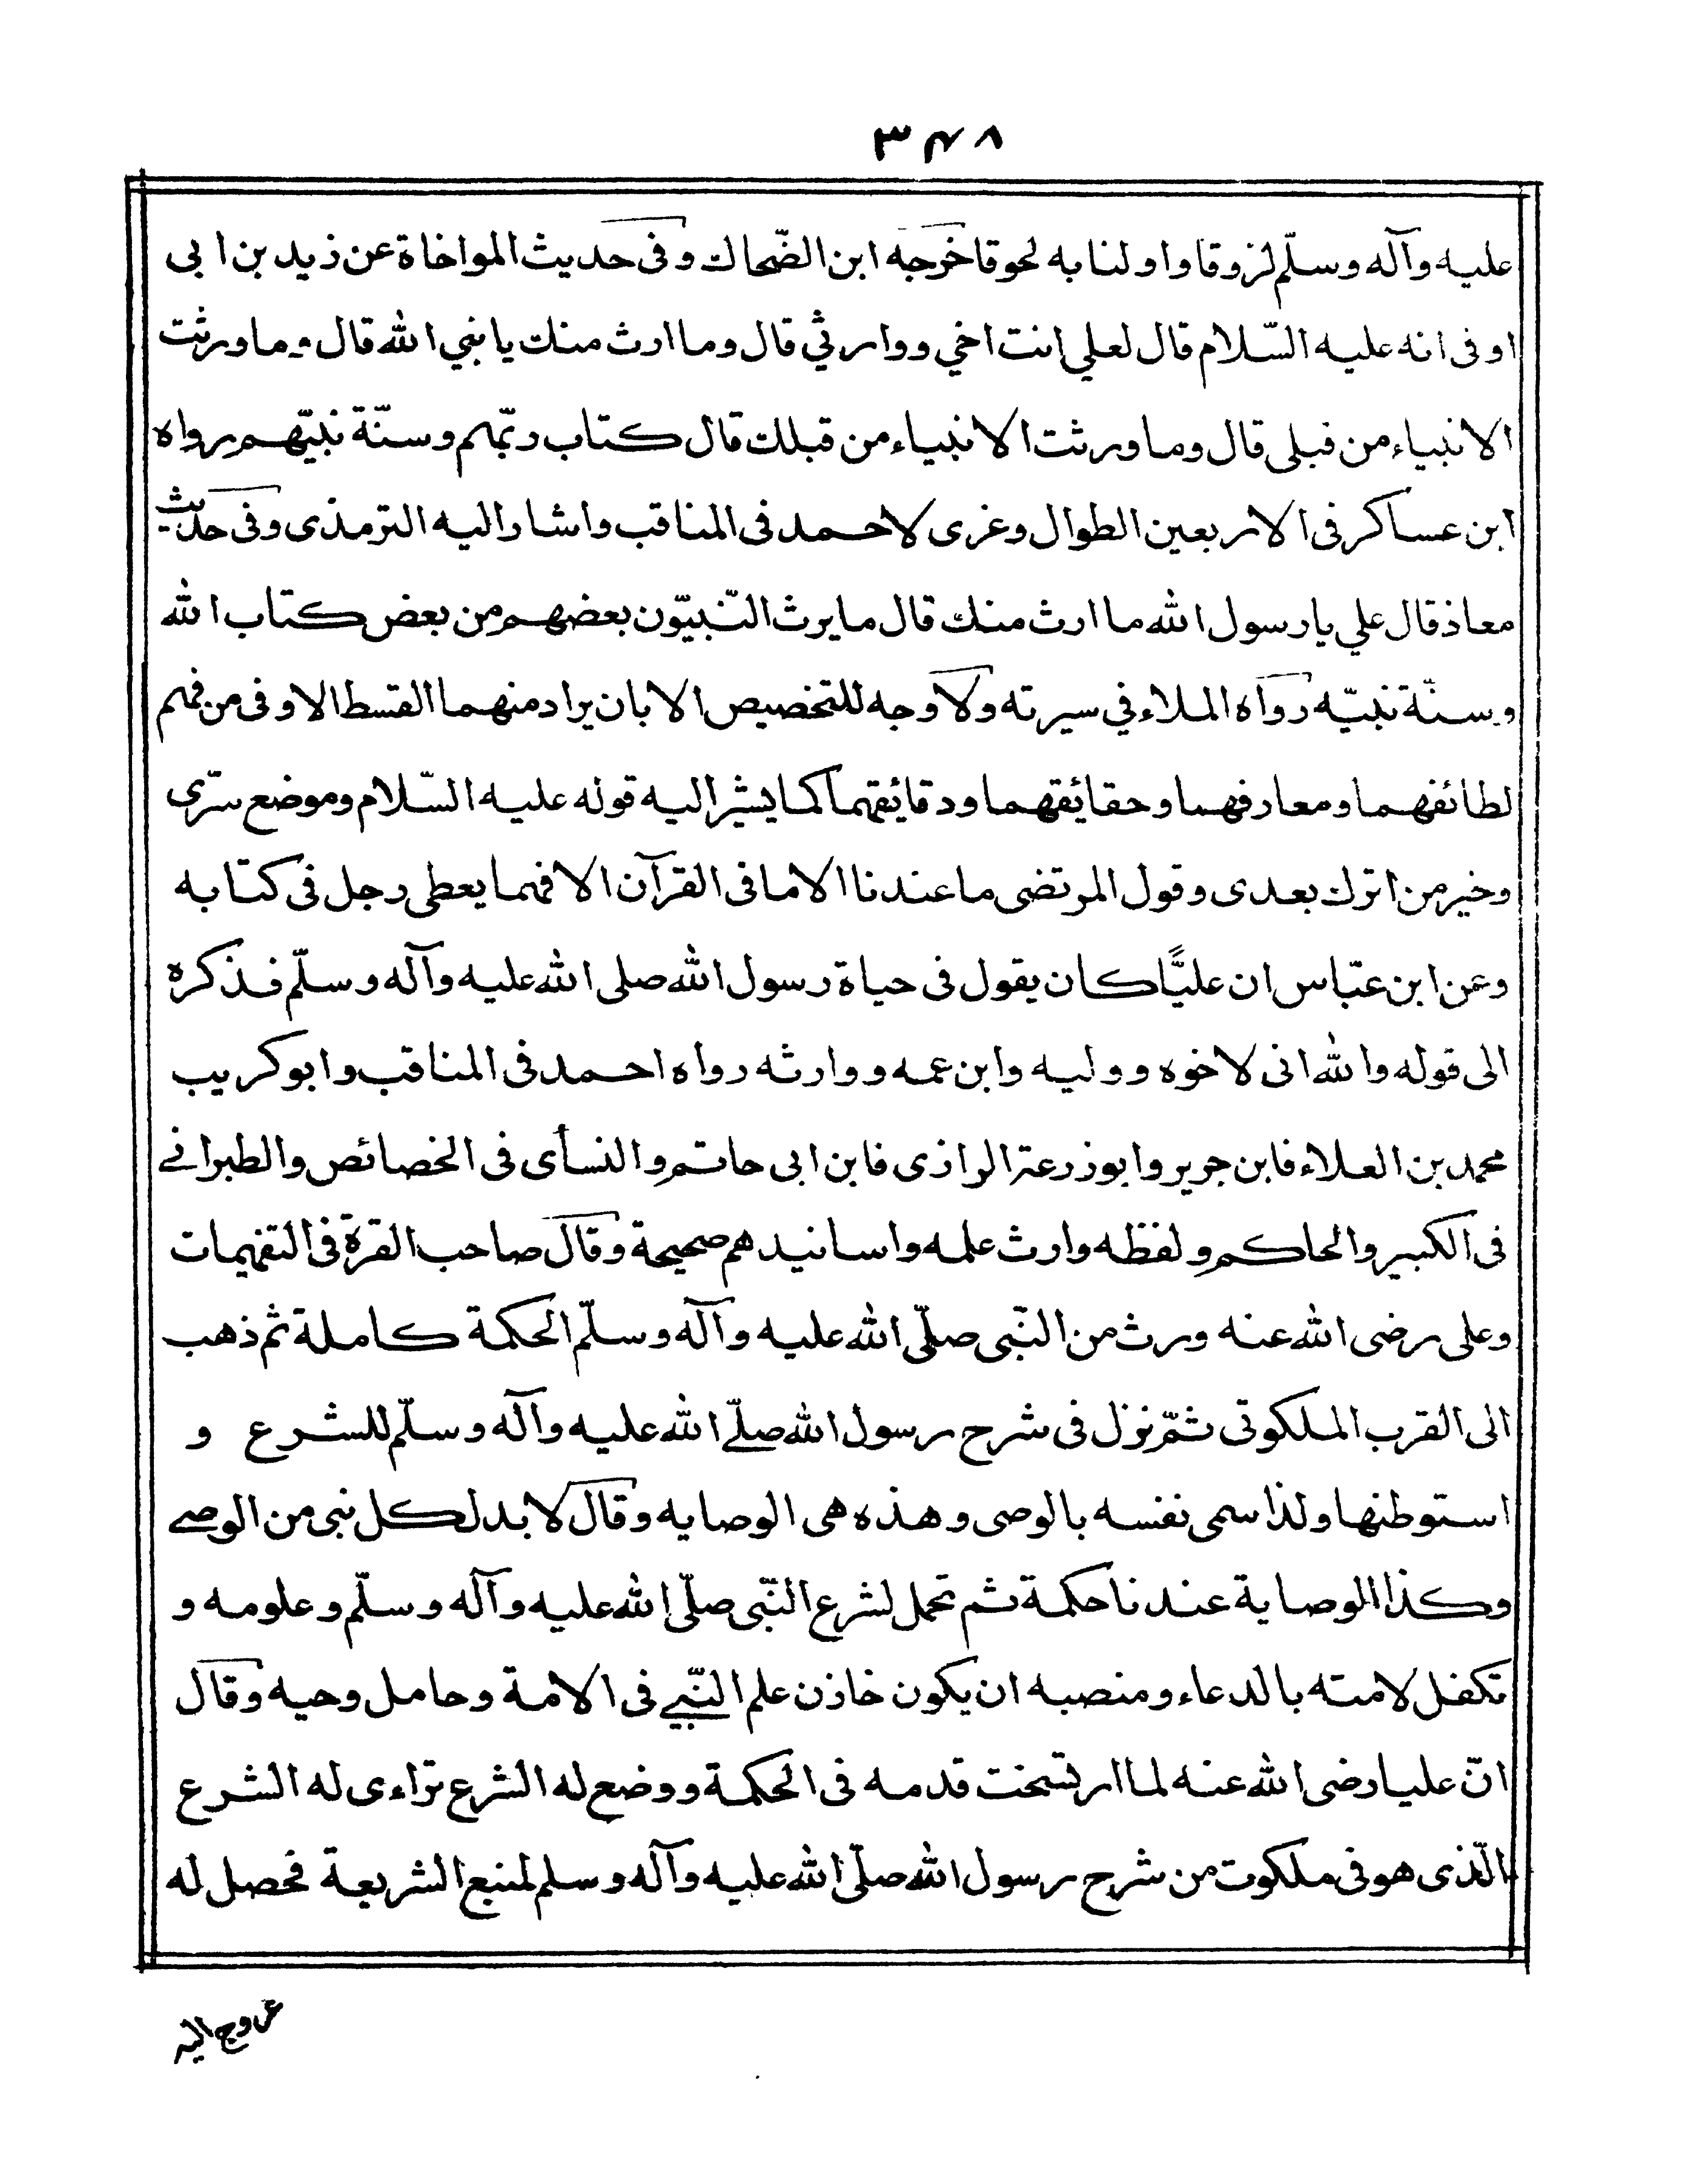 ٣٤٨
عليه وآله وسلّم لزوقا واولنا به لحوقا خرجه ابن الضّحاك وفى حديث المواخاة عن زيد بن ابى
اوفى انه عليه السّلام قال لعلي انت اخي ووارثي قال وما ارث منك يا نبي الله قال وما ورثت
الانبياء من قبلى قال وما ورثت الانبياء من قبلك قال كتاب ربّهم وسنّة نبيّهم رواه
ابن عساكر فى الاربعين الطوال وعزى لاحمد فى المناقب واشار اليه الترمذى وفى حديث
معاذ قال علي يا رسول الله ما ارث منك قال ما يرث النّبيّون بعضهم من بعض كتاب الله
وسنّة نبيّه رواه الملاء في سيرته ولا وجه للتخصيص الا بان يراد منهما القسط الاوفى من فهم
لطائفهما ومعارفهما وحقائقهما ودقائقهما كما يشير اليه قوله عليه السّلام وموضع سرّى
وخير من اترك بعدى وقول المرتضى ما عندنا الا ما فى القرآن الا فهما يعطى رجل فى كتابه
وعن ابن عبّاس ان عليًّا كان يقول فى حياة رسول الله صلى الله عليه وآله وسلّم فذكره
الى قوله والله انى لاخوه ووليه وابن عمه ووارثه رواه احمد فى المناقب وابو كريب
محمد بن العلاء فابن جرير وابو زرعة الرازى فابن ابى حاتم والنسأى فى الخصائص والطبرانے
فى الكبير والحاكم ولفظه وارث علمه واسانيدهم صحيحة وقال صاحب القرة فى التفهيمات
وعلى رضى الله عنه ورث من النّبى صلّى الله عليه وآله وسلّم الحكمة كاملة ثم ذهب
الى القرب الملكوتى ثمّ نزل فى شرح رسول الله صلّے الله عليه وآله وسلّم للشرع و
استوطنها ولذا سمى نفسه بالوصى وهذه هى الوصايه وقال لا بد لكل نبى من الوصے
وكذا الوصاية عندنا حكمة ثم تحمل لشرع النّبى صلّى الله عليه وآله وسلّم وعلومه و
تكفل لامته بالدعاء ومنصبه ان يكون خازن علم النّبے فى الامة وحامل وحيه وقال
انّ عليا رضى الله عنه لما ارتسخت قدمه فى الحكمة ووضع له الشرع تراءى له الشرع
الّذى هو فى ملكوت من شرح رسول الله صلّى الله عليه وآله وسلم لمنبع الشريعة فحصل له
عروج اليه